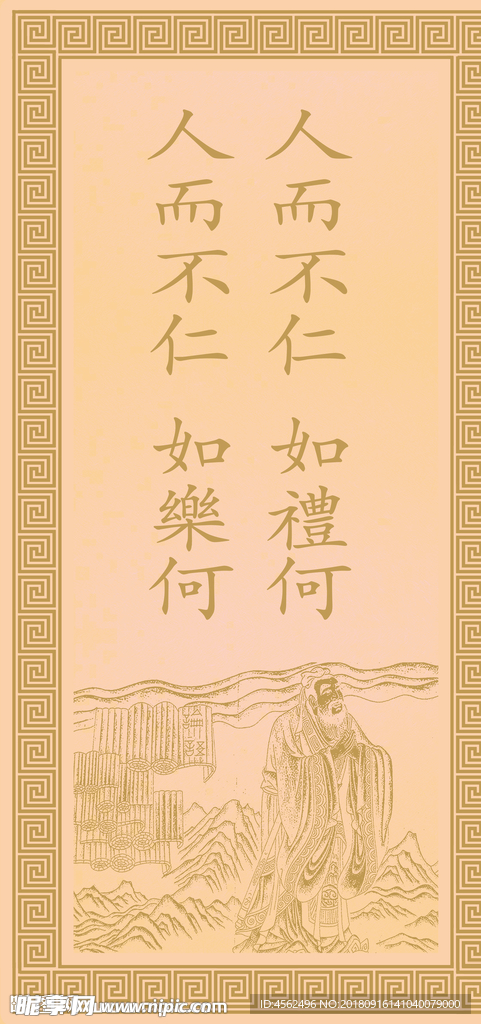 人而不仁 如禮何
人而不仁 如樂何
論語
昵享网 www.nipic.com
ID:4562496 NO:20180916141040079000